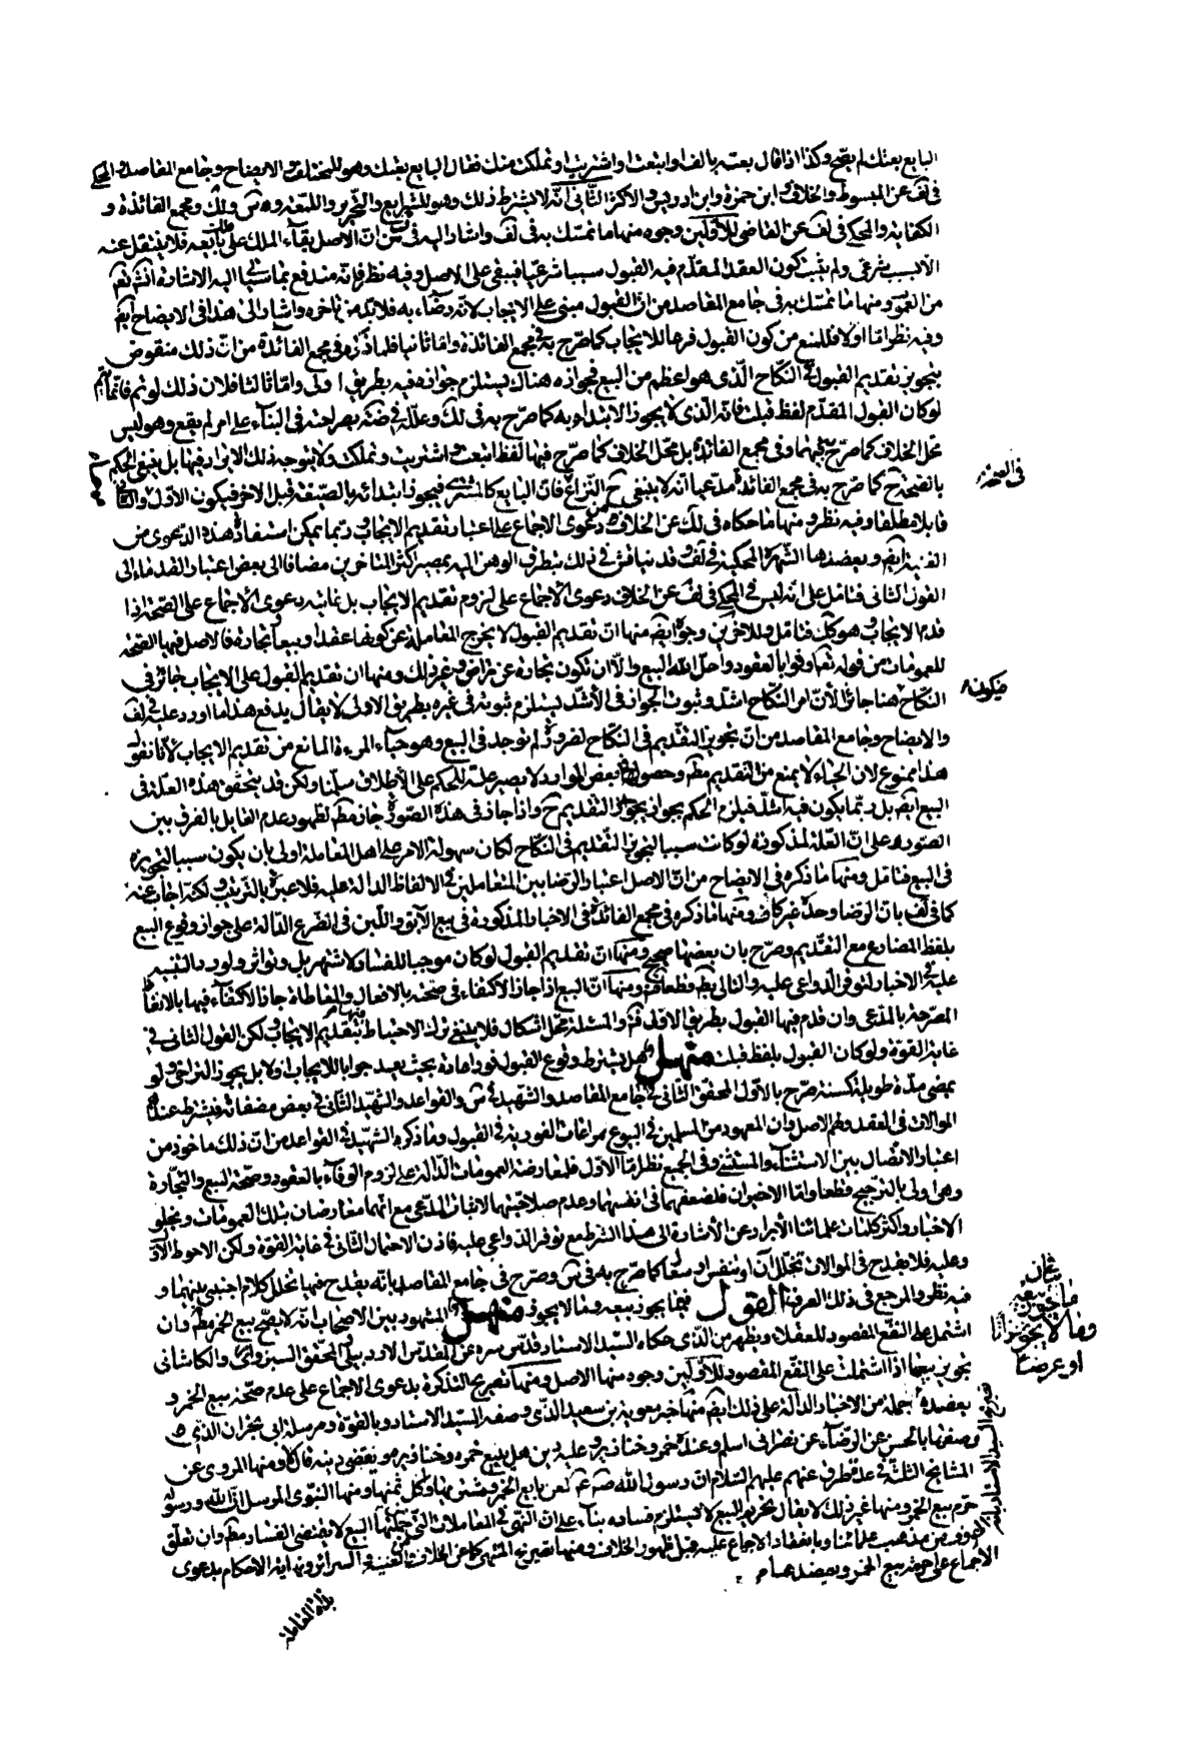 البايع بعتك لم يصح وكذا اذا قال بعته بالف او ابتعت او اشتريت او تملكت منك فقال البايع بعتك وهو للمختلف والايضاح وجامع المقاصد والمحكي
فى لف عن المبسوط والخلاف وابن حمزة وابن ادريس والاكثر الثانى انه لا يشترط ذلك وهو للشرايع والتحرير واللمعة وضه ولك ومجمع الفائدة و
الكفاية والمحكى فى لف عن القاضى للاولين وجوه منها ما تمسك به فى لف واشار اليه فى من ان الاصل بقاء الملك على بايعه فلا ينتقل عنه
الا بسبب شرعى ولم يثبت كون العقد المقدم فيه القبول سببا شرعيا فيبقى على الاصل وفيه نظر فانه مندفع بما سياتى اليه الاشارة انش تعم
من العموم ومنها ما تمسك به فى جامع المقاصد من ان القبول مبنى على الايجاب لانه رضاء به فلا بد من تاخره واشار الى هذا فى الايضاح ايض
وفيه نظر اما اولا فللمنع من كون القبول فرعا للايجاب كما صرح به فى مجمع الفائدة واما ثانيا فلما ذكره فى مجمع الفائدة من ان ذلك منقوض
بتجويز تقديم القبول فى النكاح الذى هو اعظم من البيع فجوازه هناك يستلزم جوازه فيه بطريق اولى واما ثالثا فلان ذلك لو تم فانما يتم
لو كان القبول المقدم لفظ قبلت فانه الذى لا يجوز الابتداء به كما صرح به فى لك وعلله فى ضه بصراحته فى البناء على امر لم يقع وهو ليس
محل الخلاف كما صرح به فيهما وفى مجمع الفائدة بل محل الخلاف كما صرح فيها لفظ ابتعت واشتريت وتملكت ولا يتوجه ذلك الايراد فيها بل ينبغى الحكم
بالصحة ح كما صرح به فى مجمع الفائدة مدعيا انه لا ينبغى ح النزاع فان البايع كالمشترى فيجوز ابتدائه بالصيغة قبل الاخر فيكون الاول والثانى
قابلا مطلقا وفيه نظر ومنها ما حكاه فى لك عن الخلاف من دعوى الاجماع على اعتبار تقديم الايجاب وربما يمكن استفادة هذه الدعوى من
الغنية ايض ويعضدها الشهرة المحكية فى لف وقد يناقش فى ذلك بتطرق الوهن اليه بمصير اكثر المتاخرين مضافا الى بعض اعتبار القدماء الى
القول الثانى فتامل على انه ليس فى المحكى فى لف عن الخلاف دعوى الاجماع على لزوم تقديم الايجاب بل غايته دعوى الاجماع على الصحة اذا
قدم الايجاب وهو كك فتامل وللاخرين وجوه ايض منها ان تقديم القبول لا يخرج المعاملة عن كونها عقدا وبيعا وتجارة فالاصل فيها الصحة
للعمومات من قوله تعم اوفوا بالعقود واحل الله البيع والا ان تكون تجارة عن تراض وغير ذلك ومنها ان تقديم القبول على الايجاب جائز فى
النكاح هنا جائزا لان امر النكاح اشد وثبوت الجواز فى الاشد يستلزم ثبوته فى غيره بطريق الاولى لا يقال يدفع هذا ما اورد عليه فى لف
والايضاح وجامع المقاصد من ان تجويز التقديم فى النكاح لضرورة لم توجد فى البيع وهو حياء المرءة المانع من تقديم الايجاب لانا نقول
هذا ممنوع لان الحياء لا يمنع من التقديم مطم وحصوله فى بعض الموارد لا يصير علة للحكم على الاطلاق سلمنا ولكن قد يتحقق هذه العلة فى
البيع ايض بل ربما يكون فيه اشد فيلزم الحكم بجواز التقديم ح واذا جاز فى هذه الصورة جاز مطم لظهور عدم القايل بالفرق بين
الصور وعلى ان العلة المذكورة لو كانت سببا لتجويز التقديم فى النكاح لكان سهولة الامر على اهل المعاملة اولى بان يكون سببا لتجويزه
فى البيع فتامل ومنها ما ذكره فى الايضاح من ان الاصل اعتبار الرضا بين المتعاملين فى الالفاظ الدالة عليه فلا عبرة بالترتيب ولكنه اجاب عنه
كما فى لف بان الرضا وحده غير كاف ومنها ما ذكره فى مجمع الفائدة فى الاخبار المذكورة فى بيع الابق واللبن فى الضرع الدالة على جواز وقوع البيع
بلفظ المضارع مع التقديم وصرح بان بعضها صحيح ومنها ان تقديم القبول لو كان موجبا للفساد لاشتهر بل وتواتر ولورد التنبيه
عليه فى الاخبار لتوفر الدواعى عليه والتالى بطم قطعا فتم ومنها ان البيع اذا جاز الاكتفاء فى صحته بالافعال والمعاطاة جاز الاكتفاء فيها بالالفاظ
الصريحة بالمدعى وان قدم فيها القبول بطريق الاولى فتم والمسئلة محل اشكال فلا ينبغى ترك الاحتياط فيها بتقديم الايجاب ولكن القول الثانى فى
غاية القوة ولو كان القبول بلفظ قبلت منهل هل يشترط وقوع القبول فورا عادة بحيث يعد جوابا للايجاب اولا بل يجوز التراخى ولو
بمضى مدة طويلة كسنة صرح بالاول المحقق الثانى فى جامع المقاصد والشهيد فى س والقواعد والشهيد الثانى فى بعض مصنفاته فيشترط عندهم
الموالات فى العقد ولهم الاصل وان المعهود من المسلمين فى البيوع مراعات الفورية فى القبول وما ذكره الشهيد فى القواعد من ان ذلك ماخوذ من
اعتبار الاتصال بين الاستثناء والمستثنى وفى الجميع نظر اما الاول فلمعارضة العمومات الدالة على لزوم الوفاء بالعقود وصحة البيع والتجارة
وهى اولى بالترجيح قطعا واما الاخيران فلضعفهما فى انفسهما وعدم صلاحيتهما لاثبات المدعى مع انهما معارضان بتلك العمومات وبخلو
الاخبار واكثر كلمات علمائنا الابرار عن الاشارة الى هذا الشرط مع توفر الدواعى عليه فاذن الاحتمال الثانى فى غاية القوة ولكن الاحوط الاول
وعليه فلا يقدح فى الموالات تخلل ان او تنفس او سعال كما صرح به فى س وصرح فى جامع المقاصد بانه يقدح فيها تخلل كلام اجنبى بينهما و
فيه نظر والمرجع فى ذلك العرف القول فيما يجوز بيعه وما لا يجوز منهل المشهور بين الاصحاب انه لا يصح بيع الخمر مطم وان
اشتمل على النفع المقصود للعقلاء ويظهر من الذى حكاه السيد الاستاد قدس سره عن المقدس الاردبيلى والمحقق السبزوارى والكاشانى
تجويز بيعها اذا اشتملت على النفع المقصود للاولين وجوه منها الاصل ومنها تصريح التذكرة بدعوى الاجماع على عدم صحة بيع الخمر و
يعضده جملة من الاخبار الدالة على ذلك ايض منها خبر معوية بن سعيد الذى وصفه السيد الاستاد بالقوة ومرسلة ابى نجران الذى
وصفها بالحسن عن الرضاء عن نصرانى اسلم وعنده خمر وخنازير وعليه دين هل يبيع خمره وخنازيره ويقضى دينه قال لا ومنها المروى عن
المشايخ الثلثة فى عدة طرق عنهم عليهم السلام ان رسول الله ص لعن بايع الخمر ومشتريها واكل ثمنها ومنها النبوى المرسل ان الله ورسوله
حرم بيع الخمر ومنها غير ذلك لا يقال تحريم البيع لا يستلزم فساده بناء على ان النهى فى المعاملات التى من جملتها البيع لا يقتضى الفساد مطم وان تعلق
الاجماع على حرمة بيع الخمر ويعضده
فى الصحة
فيكون
بيان
ما يجوز بيعه
وما لا يجوز نزرا
او عرضا
بذلة الفاطة